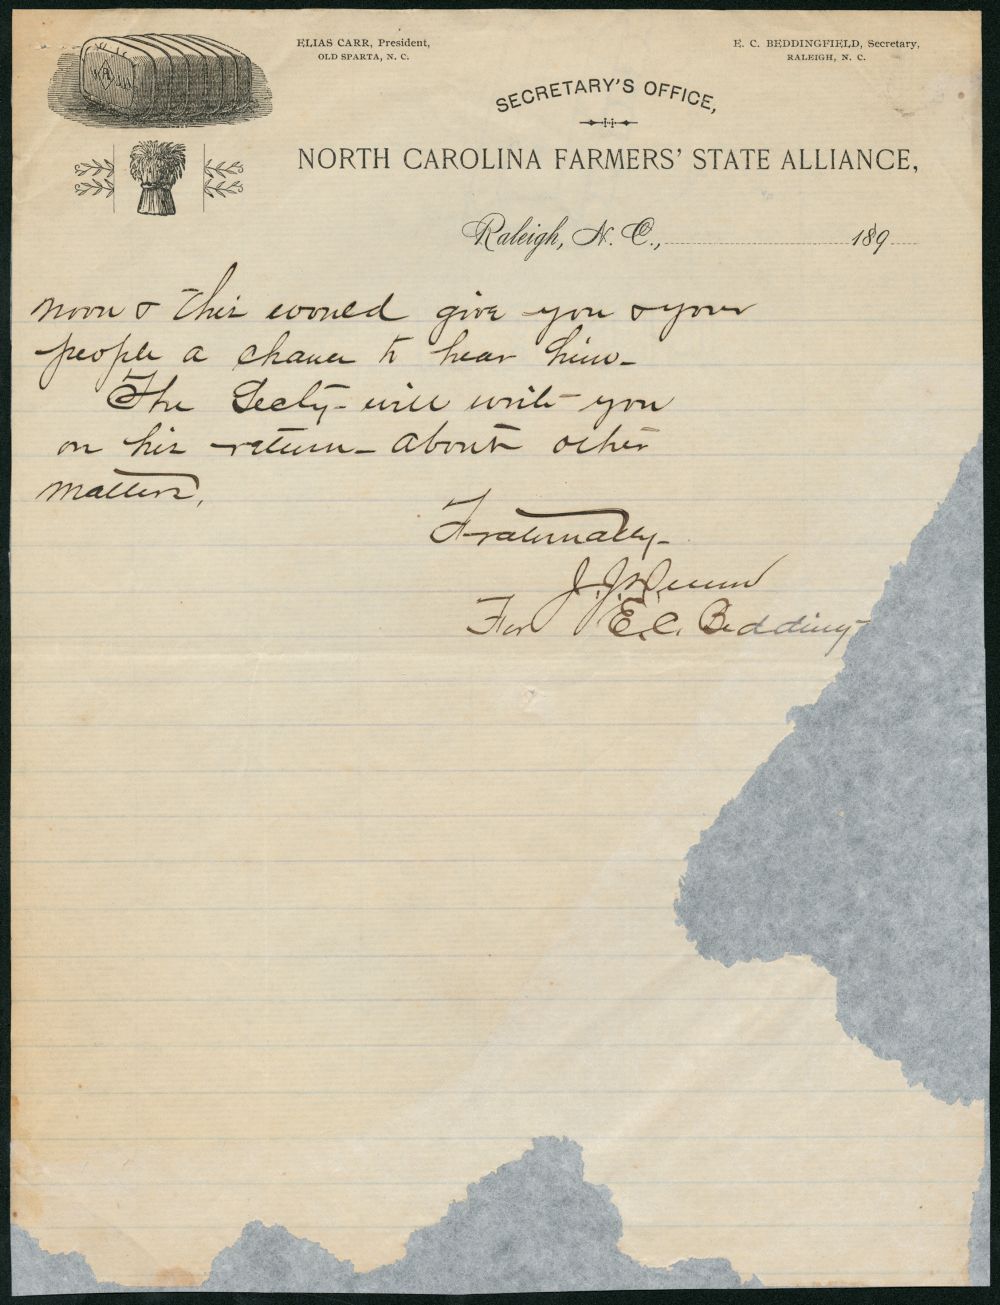 ELIAS CARR, President,
OLD SPARTA, N. C.
E. C. BEDDINGFIELD, Secretary,
RALEIGH, N. C.
SECRETARY'S OFFICE,
NORTH CAROLINA FARMERS' STATE ALLIANCE,
Raleigh, N. C., 189
noon & this would give you & your
people a chance to hear him -
The Secty - will write you
on his return - about other
matters,
Fraternally -
J. J.
For E. C. Bedding